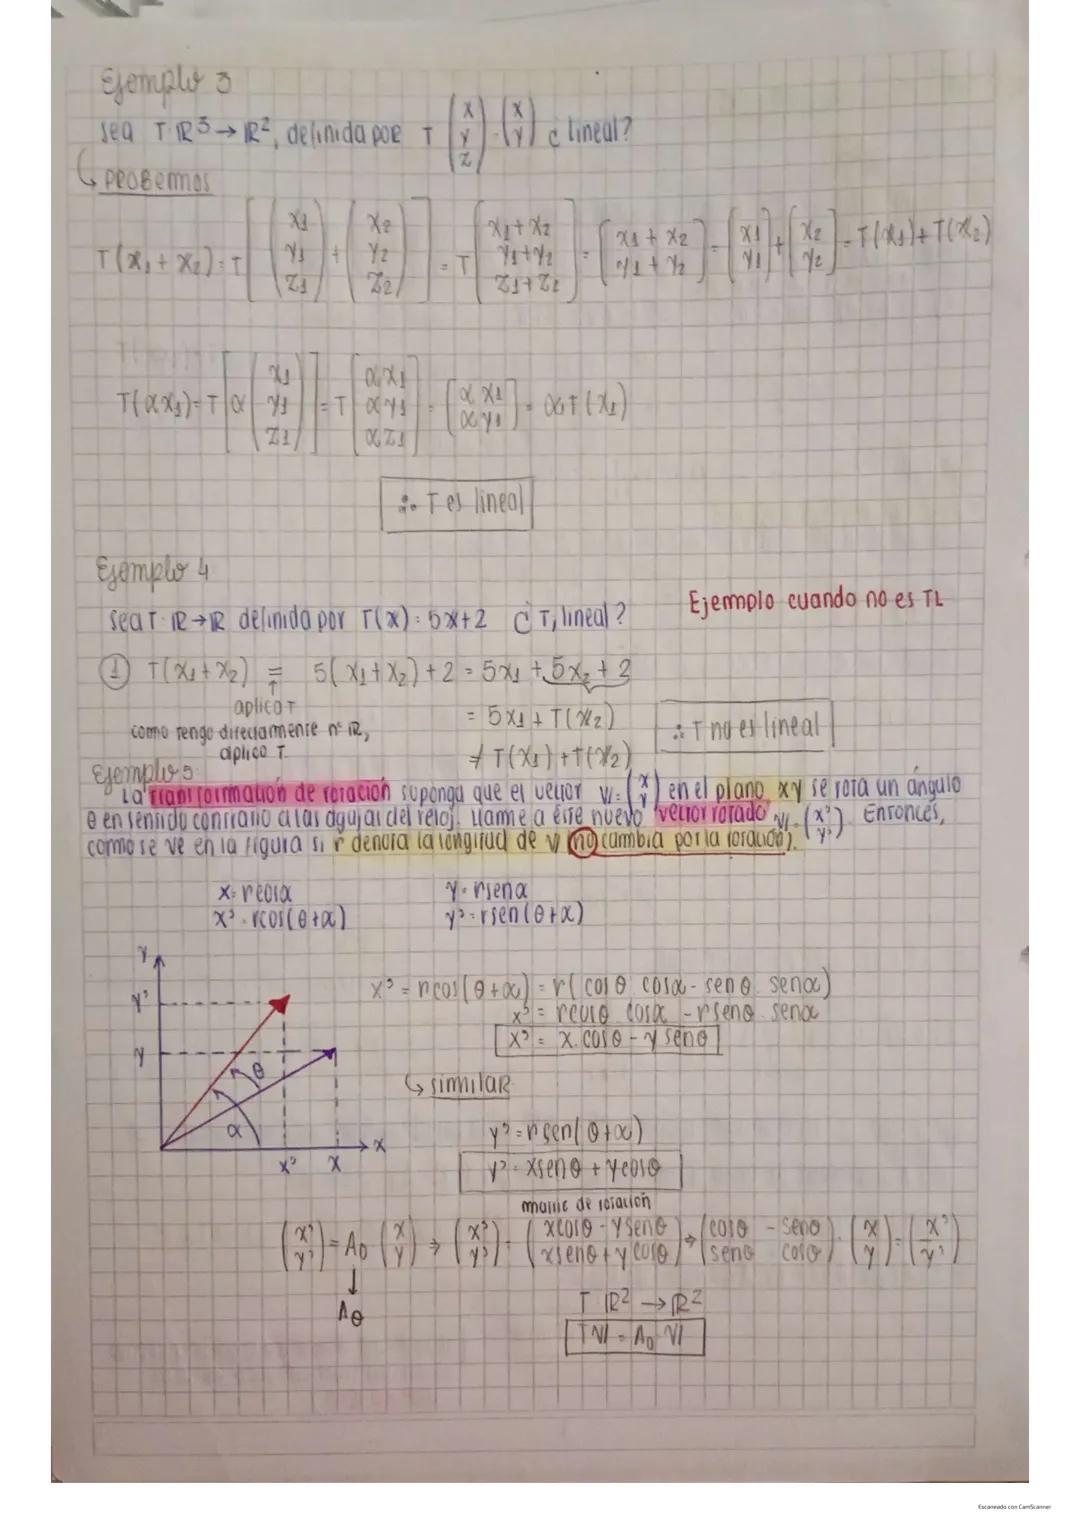 Ejemplo 3
sea T: ℝ³ → ℝ², definida por T (x y z) = (x y) ¿ lineal?
↳ probemos
T(x₁ + x₂) = T [(x₁ y₁ z₁) + (x₂ y₂ z₂)] = T [x₁+x₂ y₁+y₂ z₁+z₂] = [x₁+x₂ y₁+y₂] = [x₁ y₁] + [x₂ y₂] = T(x₁)+T(x₂)
T(αx₁) = T [α (x₁ y₁ z₁)] = T [αx₁ αy₁ αz₁] = [αx₁ αy₁] = αT(x₁)
∴ T es lineal
Ejemplo 4
Ejemplo cuando no es TL
sea T: ℝ→ℝ definida por T(x) = 5x+2 ¿ T, lineal?
① T(x₁+x₂) = 5(x₁+x₂)+2 = 5x₁ + 5x₂ + 2
↑
aplico T
como tengo directamente n° ℝ,
aplico T.
= 5x₁ + T(x₂)
≠ T(x₁)+T(x₂)
∴ T no es lineal
Ejemplo 5
La transformación de rotación suponga que el vector v = (x y) en el plano xy se rota un ángulo
θ en sentido contrario a las agujas del reloj. llame a este nuevo vector rotado v' = (x' y'). Entonces,
como se ve en la figura si r denota la longitud de v (no cambia por la rotación).
x = rcosα y = rsenα
x' = rcos(θ+α) y' = rsen(θ+α)
y
y'
y
θ
α
x' x
x
x' = rcos(θ+α) = r(cosθ cosα - senθ. senα)
x' = rcosθ cosα - rsenθ. senα
x' = x.cosθ - y senθ
↳ similar
y' = rsen(θ+α)
y' = xsenθ + ycosθ
matriz de rotación
(x' y') = Aθ (x y) → (x' y') = (xcosθ - ysenθ xsenθ + ycosθ) → (cosθ -senθ senθ cosθ) . (x y) = (x' y')
↓
Aθ
T: ℝ² → ℝ²
Tv = Aθ v
Escaneado con CamScanner